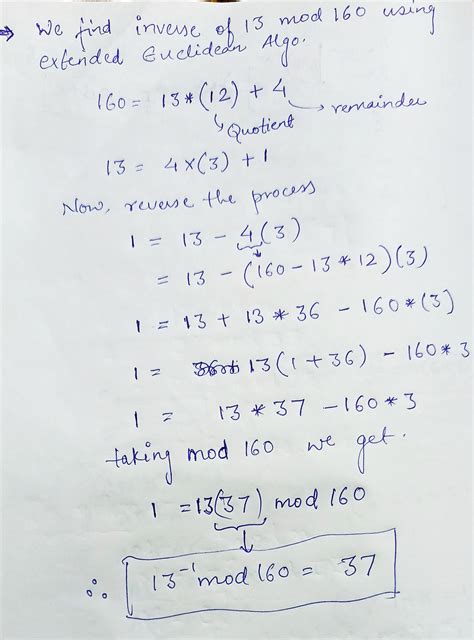 ⇒ We find inverse of 13 mod 160 using
extended Euclidean Algo.
160 = 13*(12) + 4
→ remainder
↳ Quotient
13 = 4×(3) + 1
Now, reverse the process
1 = 13 - 4(3)
= 13 - (160 - 13 * 12)(3)
1 = 13 + 13 * 36 - 160*(3)
1 = 13(1 + 36) - 160 * 3
1 = 13 * 37 - 160 * 3
taking mod 160 we get.
1 = 13(37) mod 160
∴ 13⁻¹ mod 160 = 37